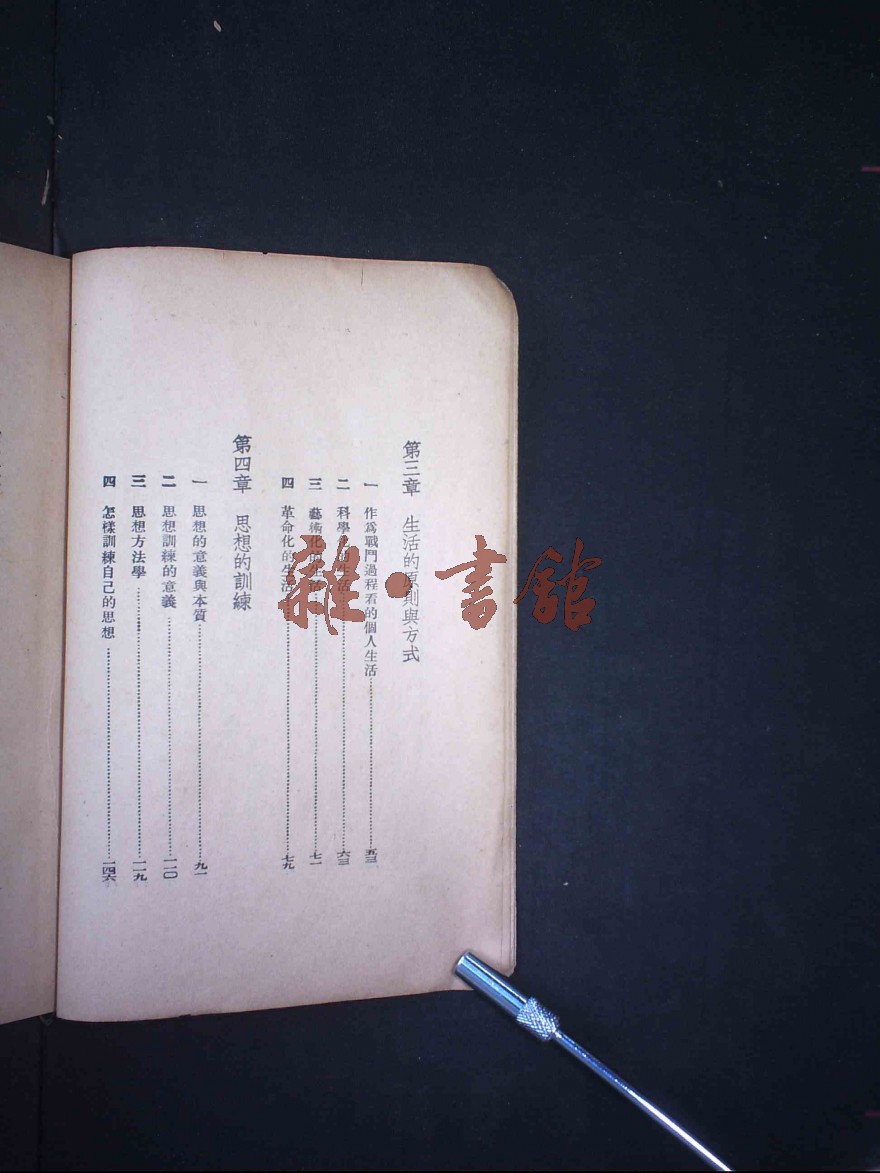 第三章 生活的原則與方式
一 作爲戰鬥過程看的個人生活 五三
二 科學化的生活 六三
三 藝術化的生活 七一
四 革命化的生活 七九
第四章 思想的訓練
一 思想的意義與本質 九一
二 思想訓練的意義 一一〇
三 思想方法學 一一九
四 怎樣訓練自己的思想 一四六
雜·書館